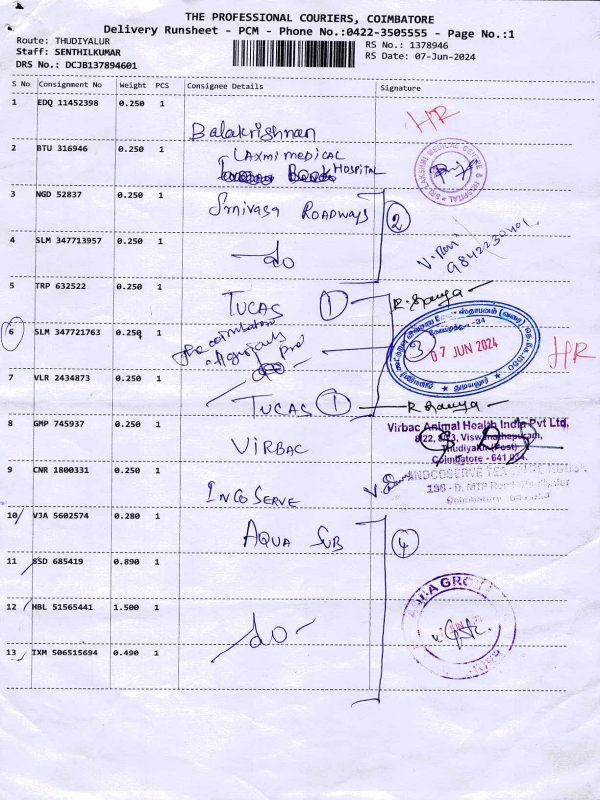 THE PROFESSIONAL COURIERS, COIMBATORE
Delivery Runsheet - PCM - Phone No.:0422-3505555 - Page No.:1
Route: THUDIYALUR
RS No.: 1378946
Staff: SENTHILKUMAR
RS Date: 07-Jun-2024
DRS No.: DCJB137894601
S No Consignment No Weight PCS Consignee Details Signature
1 EDQ 11452398 0.250 1
HR
Balakrishnan
2 BTU 316946 0.250 1
Laxmi medical
Hospital
3 NGD 52837 0.250 1
Srnivasa Roadways
2
4 SLM 347713957 0.250 1
do
9842230401
5 TRP 632522 0.250 1
TUCAS 1
6 SLM 347721763 0.250 1
3
07 JUN 2024
HR
7 VLR 2434873 0.250 1
TUCAS 1
8 GMP 745937 0.250 1
VIRBAC
Virbac Animal Health India Pvt Ltd,
Coimbatore - 641 034.
9 CNR 1800331 0.250 1
INCOSERVE
10 VJA 5602574 0.280 1
AQUA SUB
4
11 SSD 685419 0.890 1
12 HBL 51565441 1.500 1
do
13 IXM 506515694 0.490 1